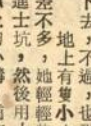 下去，不過，也
地上有隻小
差不多，她輕輕
進土坑，然後用